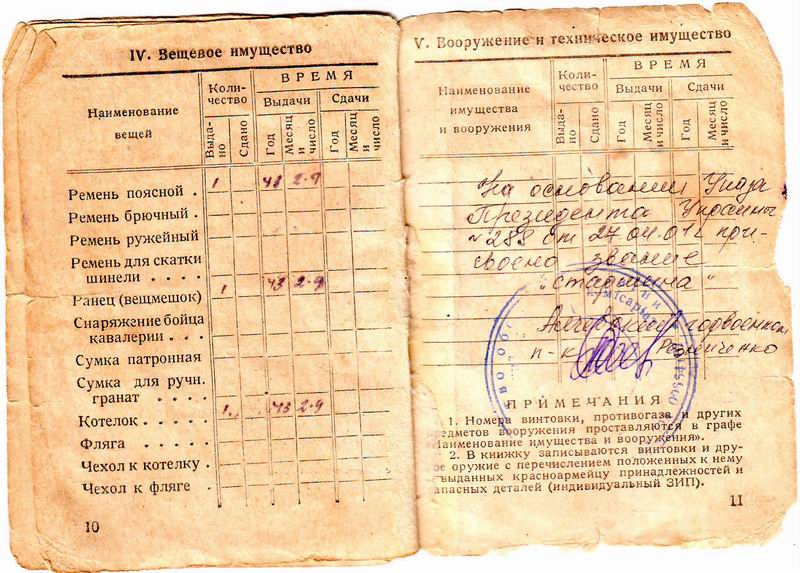 IV. Вещевое имущество
Наименование
вещей
Коли-
чество
ВРЕМЯ
Выдачи
Сдачи
Выда-
но
Сдано
Год
Месяц
и
число
Год
Месяц
и число
Ремень поясной . 1 43 2-9
Ремень брючный .
Ремень ружейный
Ремень для скатки
шинели . . . .
Ранец (вещмешок) 1 43 2-9
Снаряжение бойца
кавалерии . . .
Сумка патронная
Сумка для ручн.
гранат . . . .
Котелок . . . . . 1 43 2-9
Фляга . . . . .
Чехол к котелку .
Чехол к фляге .
10
V. Вооружение и техническое имущество
Наименование
имущества
и вооружения
Коли-
чество
ВРЕМЯ
Выдачи
Сдачи
Выда-
но
Сдано
Год
Месяц
и число
Год
Месяц
и число
На основании Указа
Президента Украины
№ 288 от 27.04.01г при-
своено звание
"старшина"
горвоенком
п-к Резниченко
ПРИМЕЧАНИЯ
1. Номера винтовки, противогаза и других
предметов вооружения проставляются в графе
«Наименование имущества и вооружения».
2. В книжку записываются винтовки и дру-
ое оружие с перечислением положенных к нему
выданных красноармейцу принадлежностей и
апасных деталей (индивидуальный ЗИП).
11